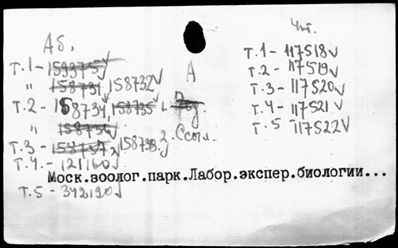 Аб.
т.1 - 159375√
" 158731, 158732√
т.2 - 158734, 158735
" 158736√
т.3 - 158737, 158738
т.4. - 121160√
т.5 - 342120√
А
Чит.
т.1 - 117518√
т.2 - 117519√
т.3 - 117520√
т.4 - 117521√
т.5 - 117522√
Моск.зоолог.парк.Лабор.экспер.биологии...